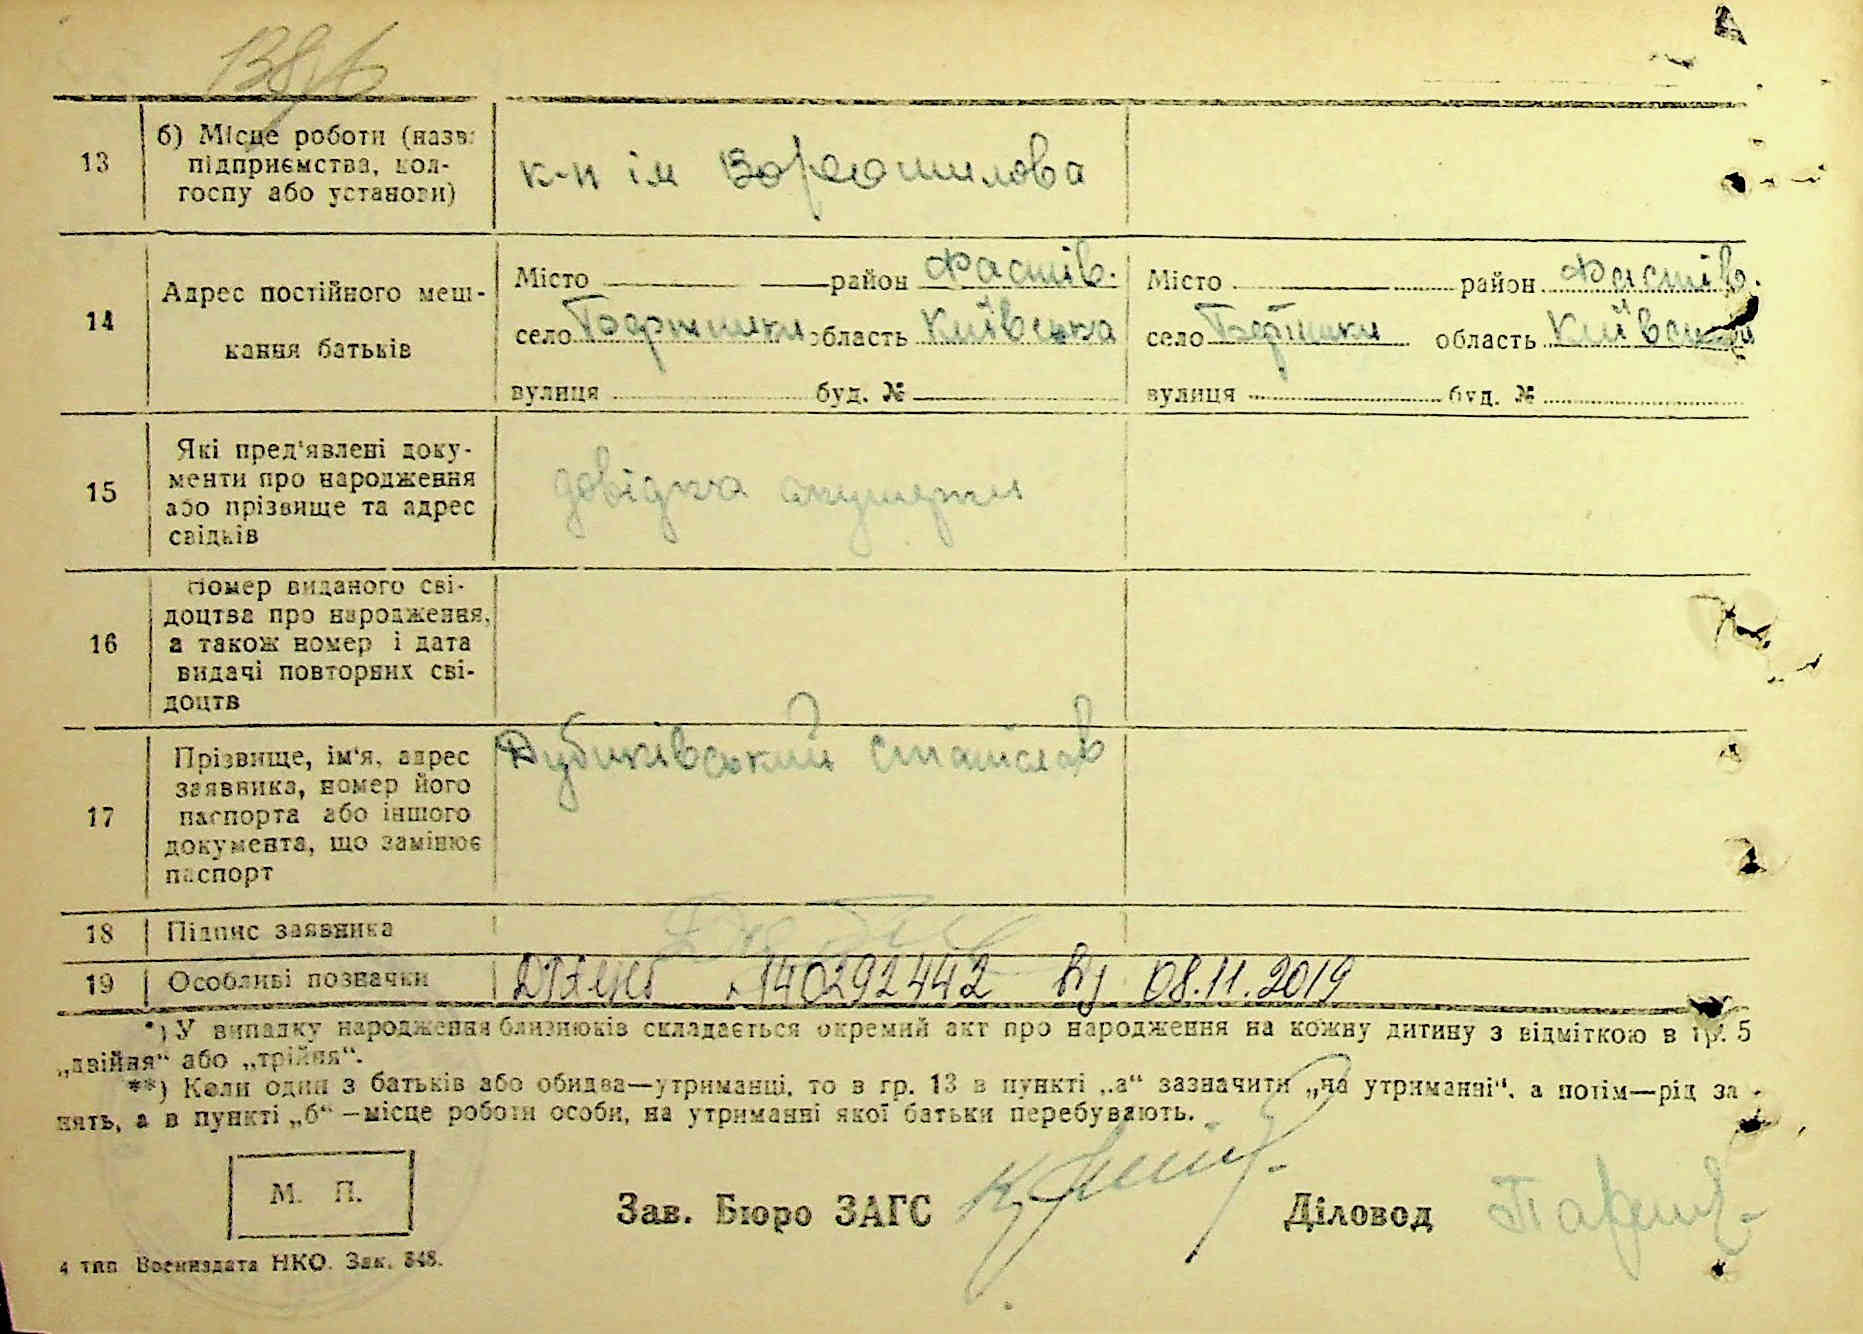 13 б) Місце роботи (назва
підприємства, кол-
госпу або установи)
к-п ім Ворошилова
14 Адрес постійного меш-
кання батьків
Місто район Фастів.
село область Київська
вулиця буд. №
Місто район Фастів.
село область Київська
вулиця буд. №
15 Які пред'явлені доку-
менти про народження
або прізвище та адрес
свідків
довідка акушерки
16 Номер виданого сві-
доцтва про народження,
а також номер і дата
видачі повторних сві-
доцтв
17 Прізвище, ім'я, адрес
заявника, номер його
паспорта або іншого
документа, що замінює
паспорт
Станіслав
18 Підпис заявника
19 Особливі позначки
140292442 08.11.2019
*) У випадку народження близнюків складається окремий акт про народження на кожну дитину з відміткою в гр. 5
„двійня“ або „трійня“.
**) Коли один з батьків або обидва—утриманці, то в гр. 13 в пункті „а“ зазначити „на утриманні“, а потім—рід за
нять, а в пункті „б“ —місце роботи особи, на утриманні якої батьки перебувають.
М. П.
Зав. Бюро ЗАГС
Діловод
4 тип Воениздата НКО. Зак. 848.